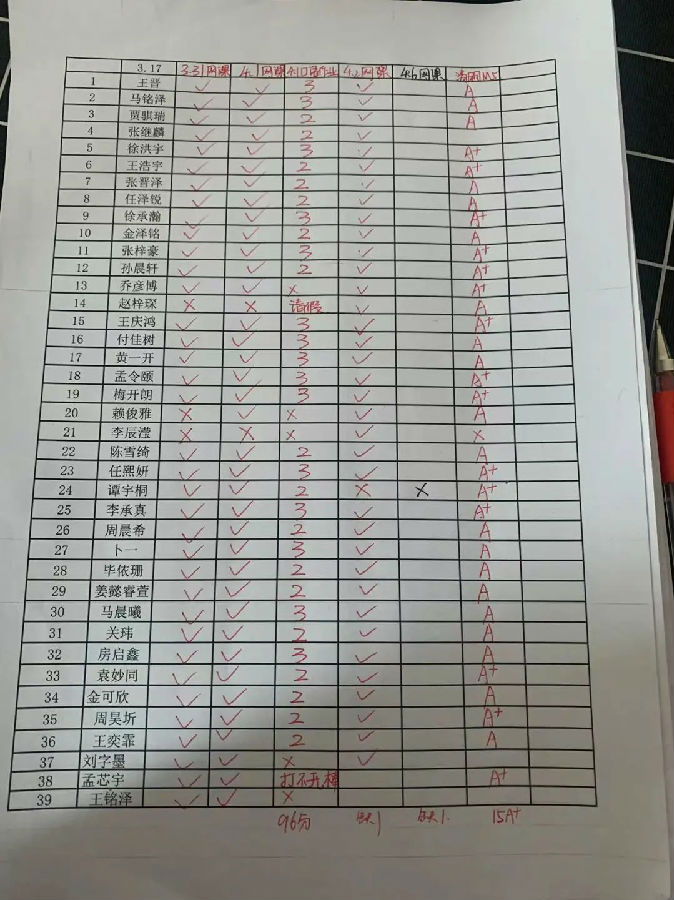 3.17 3.31网课 4.1网课 4.1口语作业 4.2网课 4.6网课
1 王晋 ✓ ✓ 3 ✓ A
2 马铭泽 ✓ ✓ 3 ✓ A
3 贾骐瑞 ✓ ✓ 2 ✓ A
4 张继麟 ✓ ✓ 2 ✓
5 徐洪宇 ✓ ✓ 3 ✓ A+
6 王浩宇 ✓ ✓ 2 ✓ A+
7 张晋泽 ✓ ✓ 2 ✓ A
8 任泽锐 ✓ ✓ 2 ✓ A
9 徐承瀚 ✓ ✓ 3 ✓ A+
10 金泽铭 ✓ ✓ 2 ✓ A
11 张梓豪 ✓ ✓ 3 ✓ A+
12 孙晨轩 ✓ ✓ 2 ✓ A+
13 乔彦博 ✓ ✓ × ✓ A+
14 赵梓琛 × × 请假 ✓ A
15 王庆鸿 ✓ ✓ 3 ✓ A+
16 付佳树 ✓ ✓ 3 ✓ A
17 黄一开 ✓ ✓ 3 ✓ A
18 孟令颐 ✓ ✓ 3 ✓ A+
19 梅开朗 ✓ ✓ 3 ✓ A+
20 赖俊雅 × ✓ × ✓ A
21 李辰滢 × × × ✓ ×
22 陈雪绮 ✓ ✓ 2 ✓ A
23 任熙妍 ✓ ✓ 3 ✓ A+
24 谭宇桐 ✓ ✓ 2 × × A+
25 李承真 ✓ ✓ 3 ✓ A+
26 周晨希 ✓ ✓ 2 ✓ A
27 卜一 ✓ ✓ 3 ✓ A
28 毕依珊 ✓ ✓ 2 ✓ A
29 姜懿睿萱 ✓ ✓ 2 ✓ A
30 马晨曦 ✓ ✓ 3 ✓ A
31 关玮 ✓ ✓ 2 ✓ A
32 房启鑫 ✓ ✓ 3 ✓ A
33 袁妙同 ✓ ✓ 2 ✓ A+
34 金可欣 ✓ ✓ 2 ✓ A
35 周昊圻 ✓ ✓ 2 ✓ A+
36 王奕霏 ✓ ✓ 2 ✓ A
37 刘字墨 ✓ ✓ × ✓
38 孟芯宇 ✓ ✓ 打不开 A+
39 王铭泽 ✓ ✓ ×
96分 缺1 缺1. 15A+